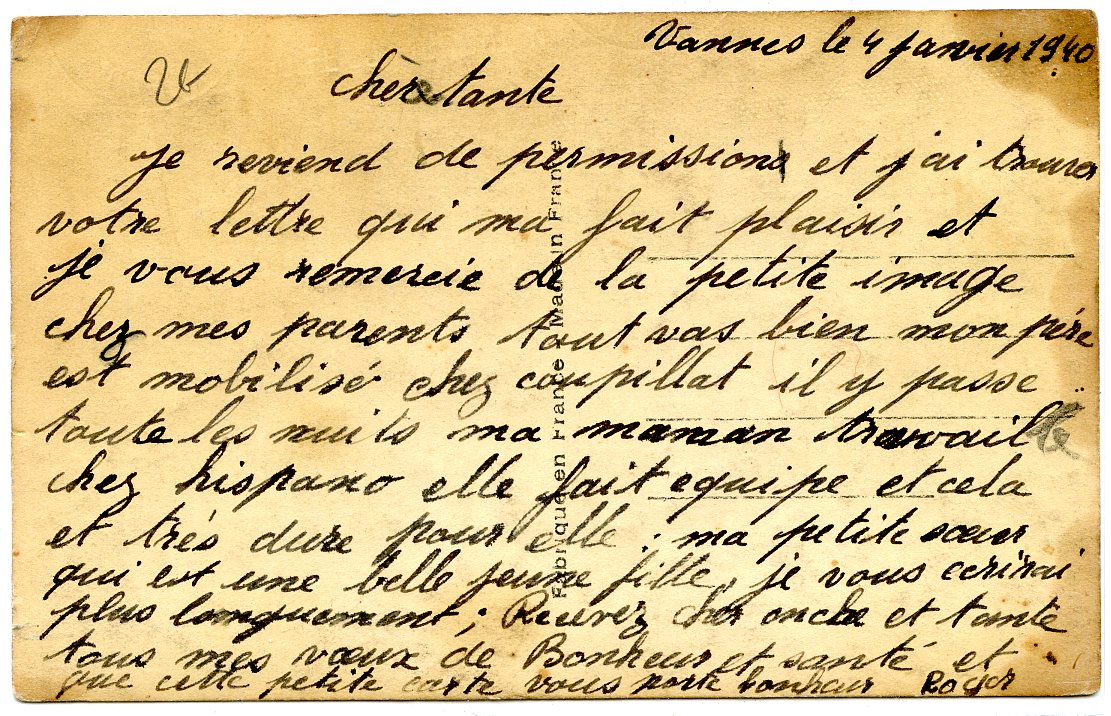 Vannes le 4 Janvier 1940
24
Cher tante
Je reviend de permission et j'ai trouver
votre lettre qui ma fait plaisir et
je vous remercie de la petite image
chez mes parents tout vas bien mon père
est mobilisé chez coupillat il y passe
toute les nuits ma maman travaille
chez hispano elle fait equipe et cela
et trés dure pour elle ; ma petite sœur
qui est une belle jeune fille, je vous ecrirai
plus longuement ; Recevez cher oncle et tante
tous mes vœux de Bonheur et santé et
que cette petite carte vous porte bonheur Roger
Fabriqué en France - Made in France